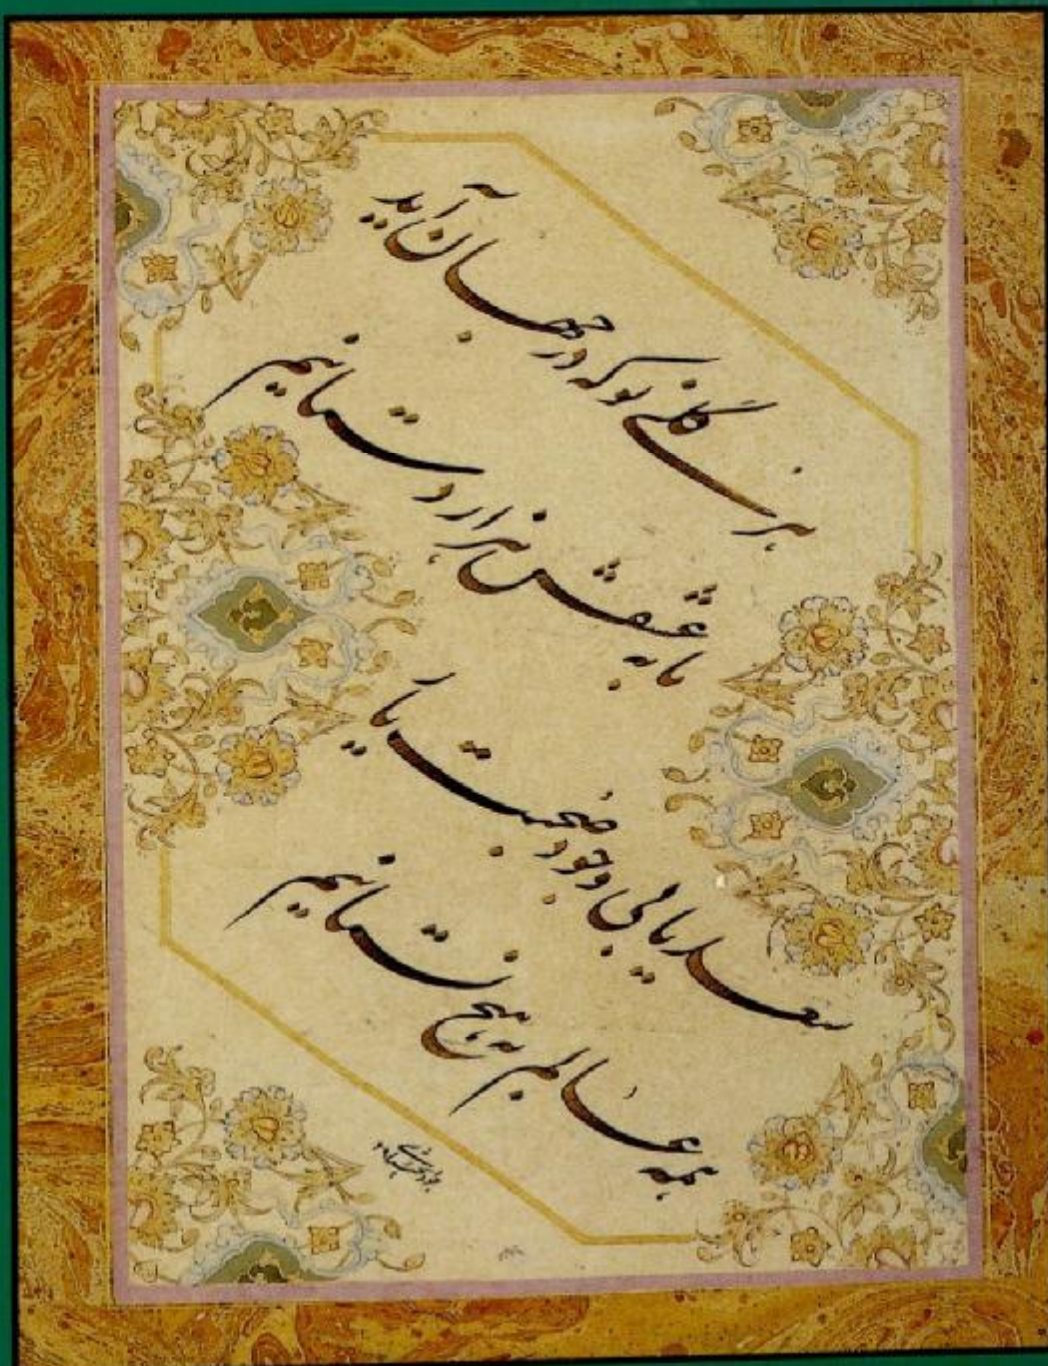 هر گلی نو که در جهان آید
ما به عشقش هزار دستانیم
سعدیا بی وجود صحبت یار
همه عالم به هیچ نستانیم